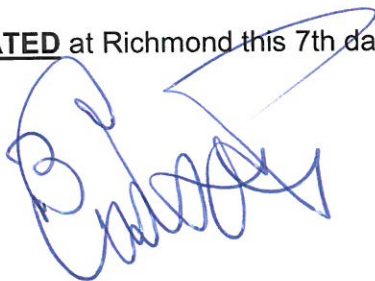 ATED at Richmond this 7th da